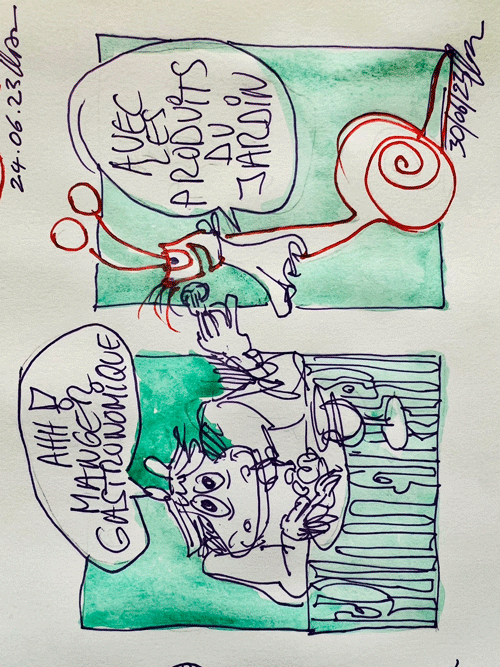 24.06.23
AHH !
MANGER
GASTRONOMIQUE
AVEC
LES
PRODUITS
DU
JARDIN
30/06/23